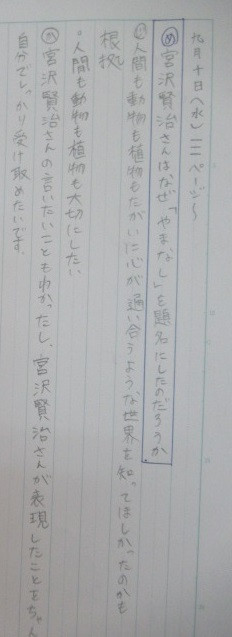 九月十日(水)一一二ページ〜
め 宮沢賢治さんはなぜ「やまなし」を題名にしたのだろうか
人間も動物も植物もたがいに心が通い合うような世界を知ってほしかったのかも
根拠
・人間も動物も植物も大切にしたい
宮沢賢治さんの言いたいこともわかったし、宮沢賢治さんが表現したことをちゃん
自分でしっかり受け取めたいです。